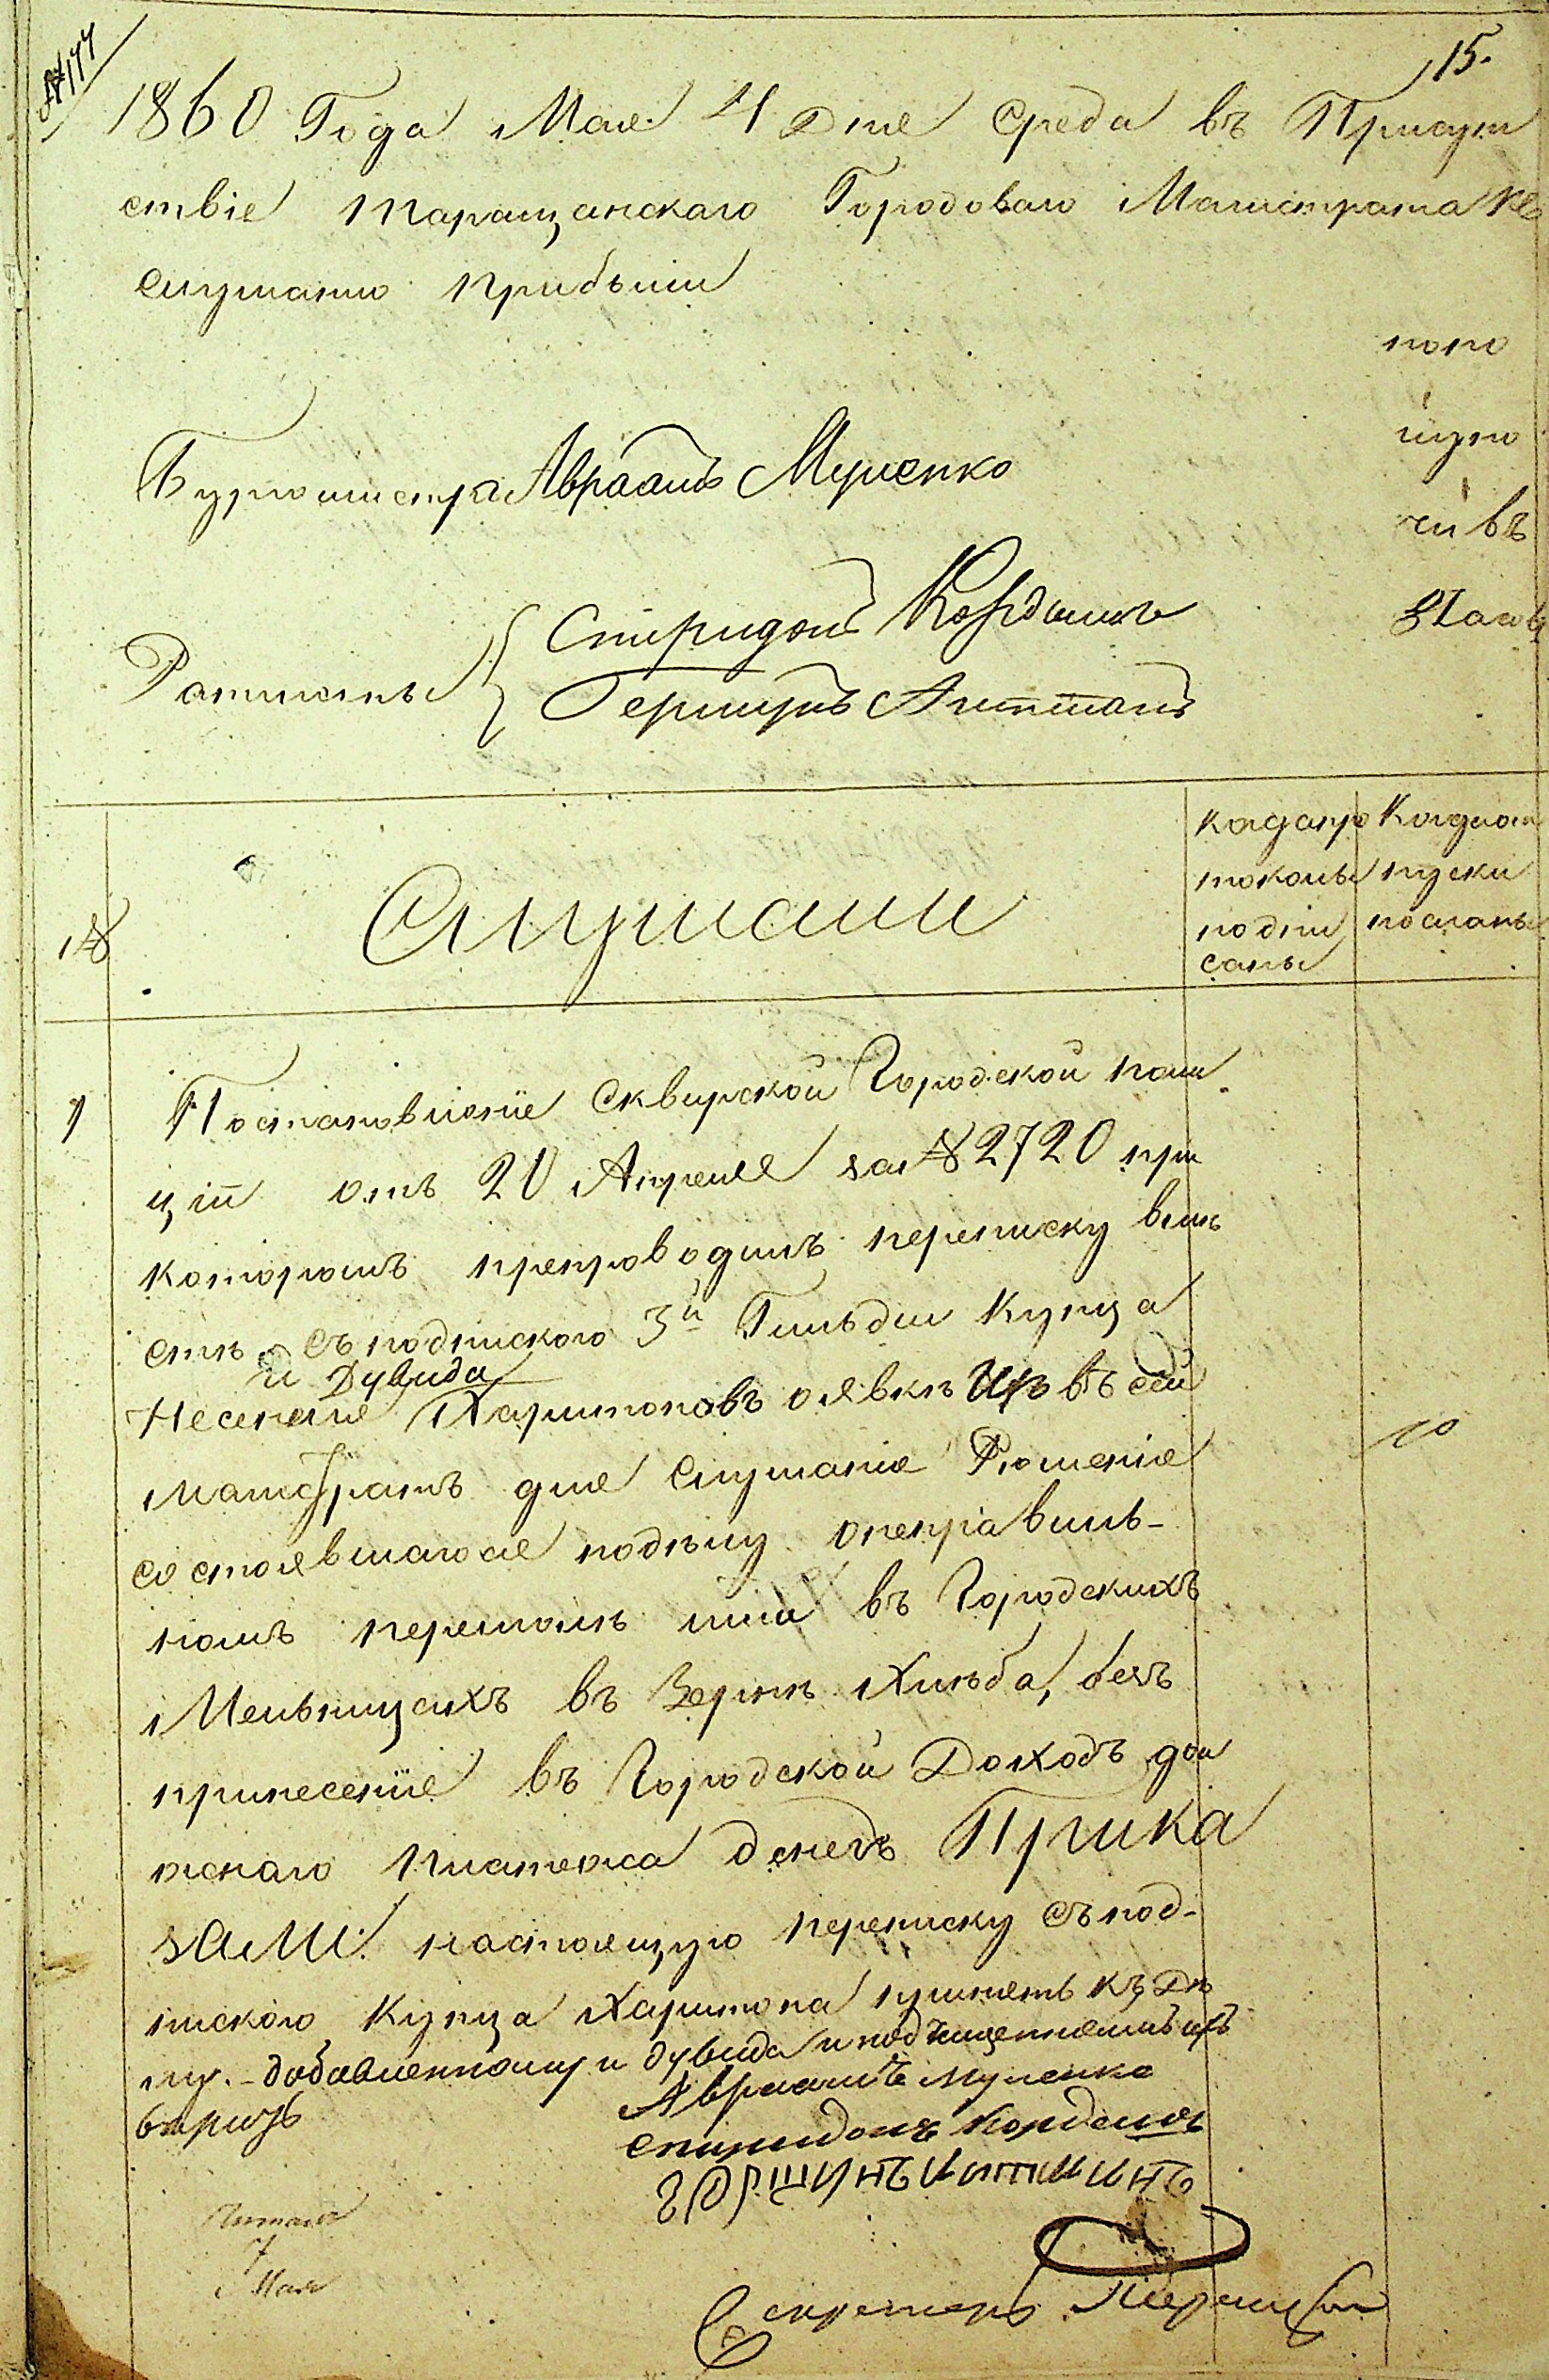 № 177
15.
1860 Года Мая 4 Дня Среда въ Присут
ствіе Таращанскаго Городоваго Магистрата къ
слушанію прибыли
попо
лудно
чи въ
8 Часовъ
Бургомистръ Авраамъ Мусенко
Ратманы { Спиридонъ Кордышъ
Гершунъ Литманъ
№
Слушали
Когда про
токолы
подпи
саны
Когда от
пуски
посланы
1
Постановленіе Сквирской Городской поли
ціи отъ 20 Апреля за № 2720 при
которомъ препроводитъ переписку вмѣ
стѣ съ подпискою 3й Гильдіи Купца
и Дувида
Несеня Харитоновъ о явкѣ Ихъ въ сей
Магистратъ для Слушанія Рѣшенія
состоявшагося по дѣлу о неправиль-
номъ перемолѣ ими въ Городскихъ
Мельницахъ въ Зернѣ Хлѣба, безъ
принесенія въ Городской Доходъ дол
жнаго платежа денегъ Прика
зали: настоящую переписку съ под-
пискою Купца Харитона принять къ Дѣ
лу. - добавленному и дувида и подчищенному ихъ
вѣрить
Авраамъ Мусенко
Спиридонъ Кордышъ
Гершунъ Литманъ
Читалъ
7
Мая
Секретарь